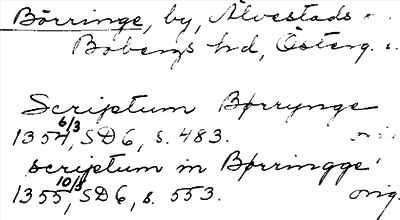 Börringe, by, Älvestads
Bobergs hd, Österg.
Scriptum Børrynge
1354 6/3, SD6, s. 483.
scriptum in Børringge
1355 10/3, SD6, s. 553. orig.